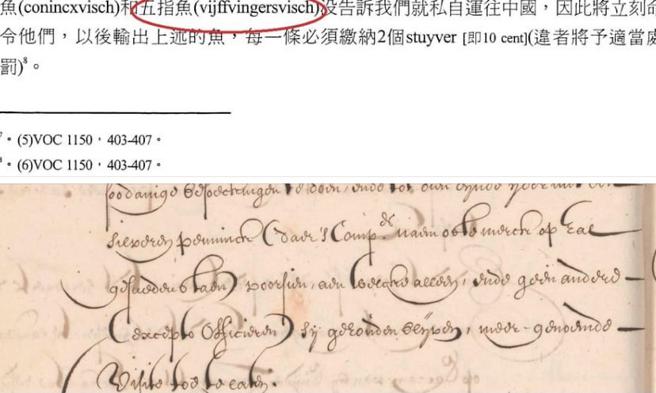 魚(conincxvisch)和五指魚(vijffvingersvisch)沒告訴我們就私自運往中國，因此將立刻命
令他們，以後輸出上述的魚，每一條必須繳納2個stuyver [即10 cent](違者將予適當處
罰)⁸。
⁷。(5)VOC 1150，403-407。
⁸。(6)VOC 1150，403-407。
sodanige besoeckingen te doen, ende tot
penninck (daer 's Comp.
staen) voorsien, aen welcke alleen, ende geen andere
(excepto Officieren) sij gehouden blijven, meer-genoemde
Visite toe te laten.